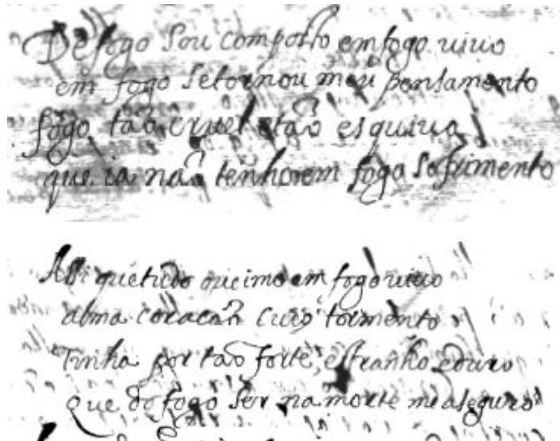 De fogo sou composto em fogo viuo
em fogo setornou meu pensamento
fogo taõ cruel etaõ esquiuo
que ia naõ tenho em fogo sofrimento
Asi que tudo em fogo uiuo
alma coracaõ cuio tormento
Tinha por taõ forte, estranho eduro
Que do fogo ser na morte measeguro